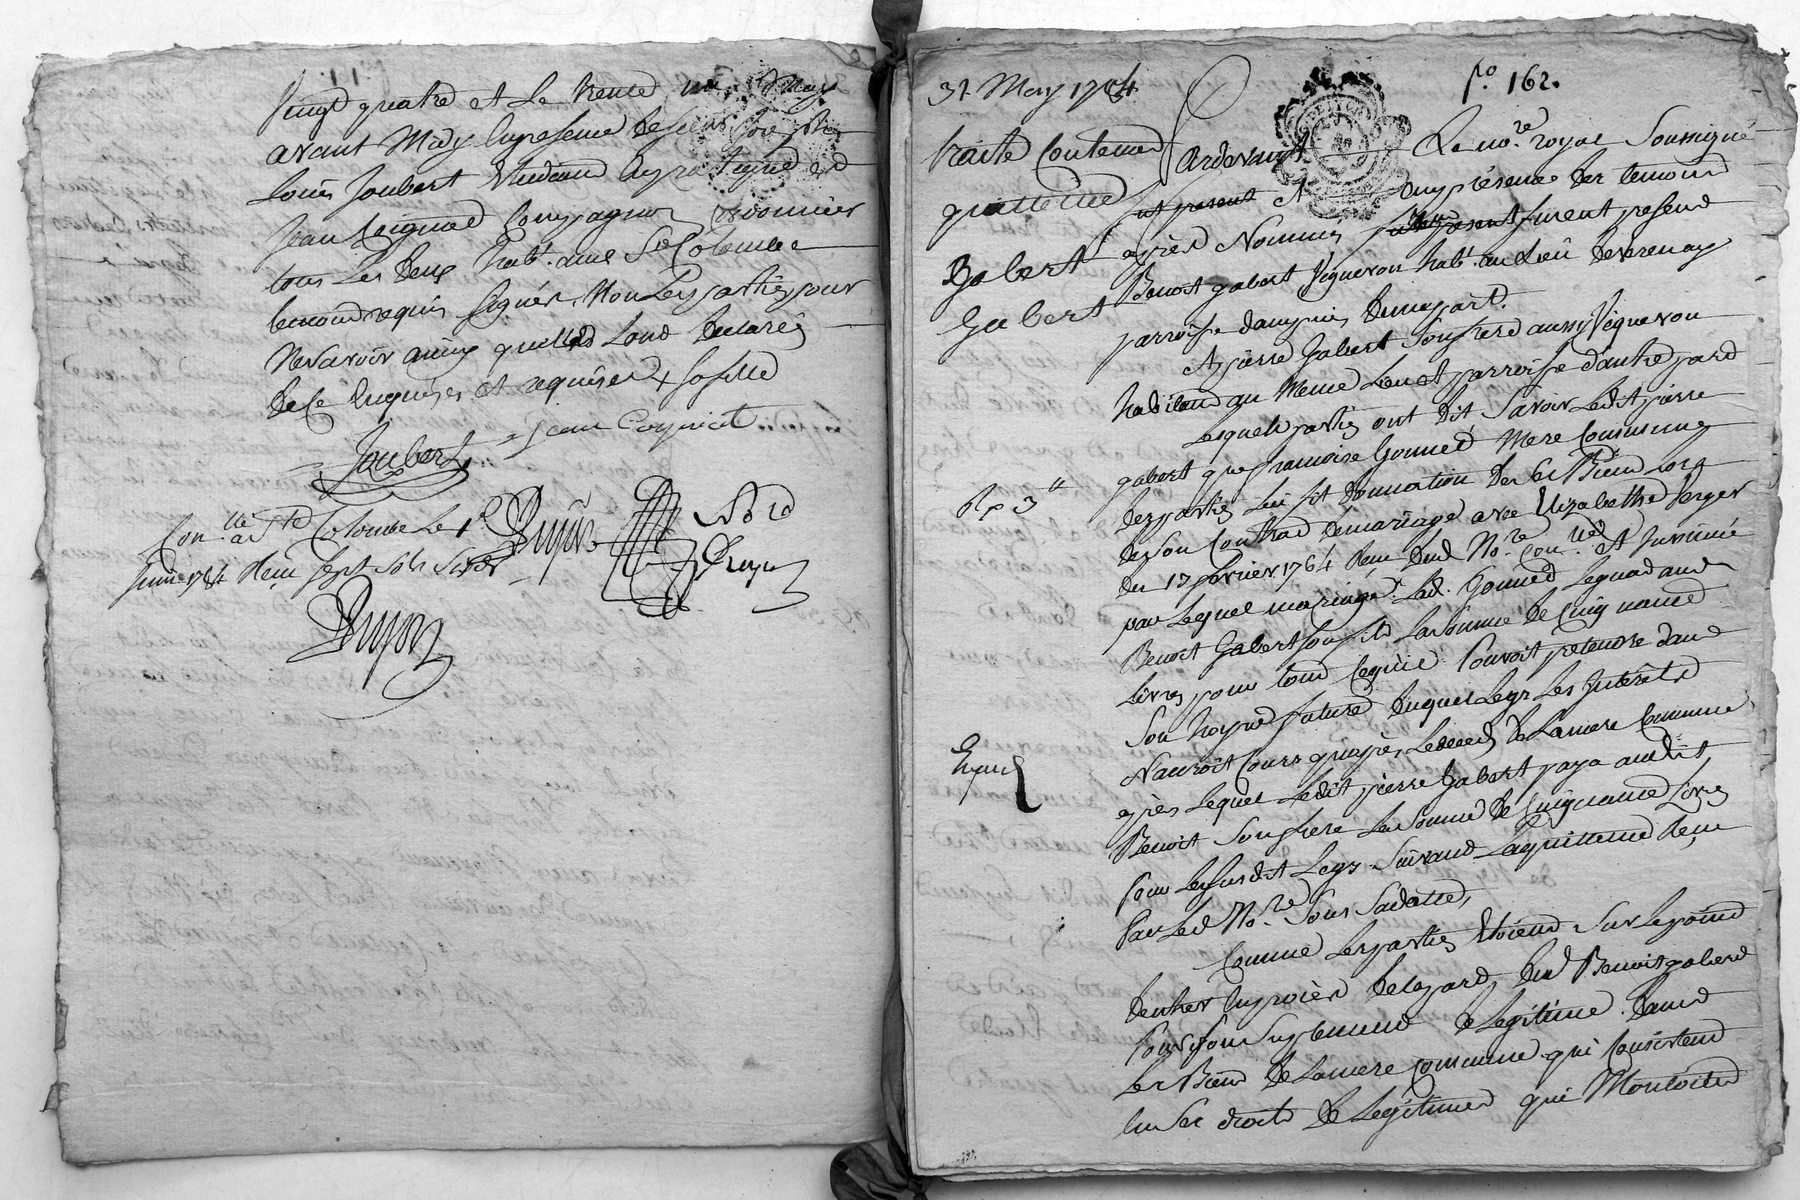 vingt quatre et le trente un may
avant midy en presence de sieurs
louis Joubert Etudiant en pratique et
Jean Coignet Compagnon Cordonnier
tous les deux hab. audt Ste Colombe
temoins requis signés, Non les parties pour
ne savoir ainsy quelles l'ont declarés
de ce enquises et requises
Joubert Jean Coignet
Con.lle a Ste Colombe le 1er
juin 1784 Reçu sept sols six
Dujon
Nord
Dujon
Dujon
31 May 1784
fo. 162.
traité Contenant
quittance
Gabert
Gabert
Pardevant Le no.re royal Soussigné
Et en presence des temoins
apres Nommés furent presents
Benoit gabert Vigneron hab. au Lieu de verenay
parroisse d'ampuis d'une part.
Et pierre Gabert Son frere aussy Vigneron
habitant au Meme Lieu et parroisse d'autre part
Lesquels parties ont dit Savoir Ledit pierre
gabert que francoise Gonnet Mere Commune
des parties lui fit donnation de ses Biens lors
de son Contrat de mariage avec Elizabethe Verger
du 17 fevrier 1764 Recu dud. No.re Con.llé et Insinué
par Lequel mariage Lad. Gonnet Legua a
Benoit Gabert son fils La Somme de Cinquante
Livres pour tout ce qu'il Pouvoit pretendre dans
Son hoyrie future duquel Legs Les Interets
N'auroit Cours qu'apres Le deced de La mere Commune
apres Lequel Ledit pierre Gabert paya audit
Benoit Son frere La Somme de Cinquante Livres
Pour Le susdit Legs Suivant La quittance Recue
Par Led. No.re Sous Sa datte,
Comme Les parties Etoient Sur Le point
d'entrer en procès de La part dud. Benoit gabert
Pour Son Suplement de Legitime dans
Les Biens de La mere Commune qui Consistent
En Ses droits de Legitimes qui Montoient